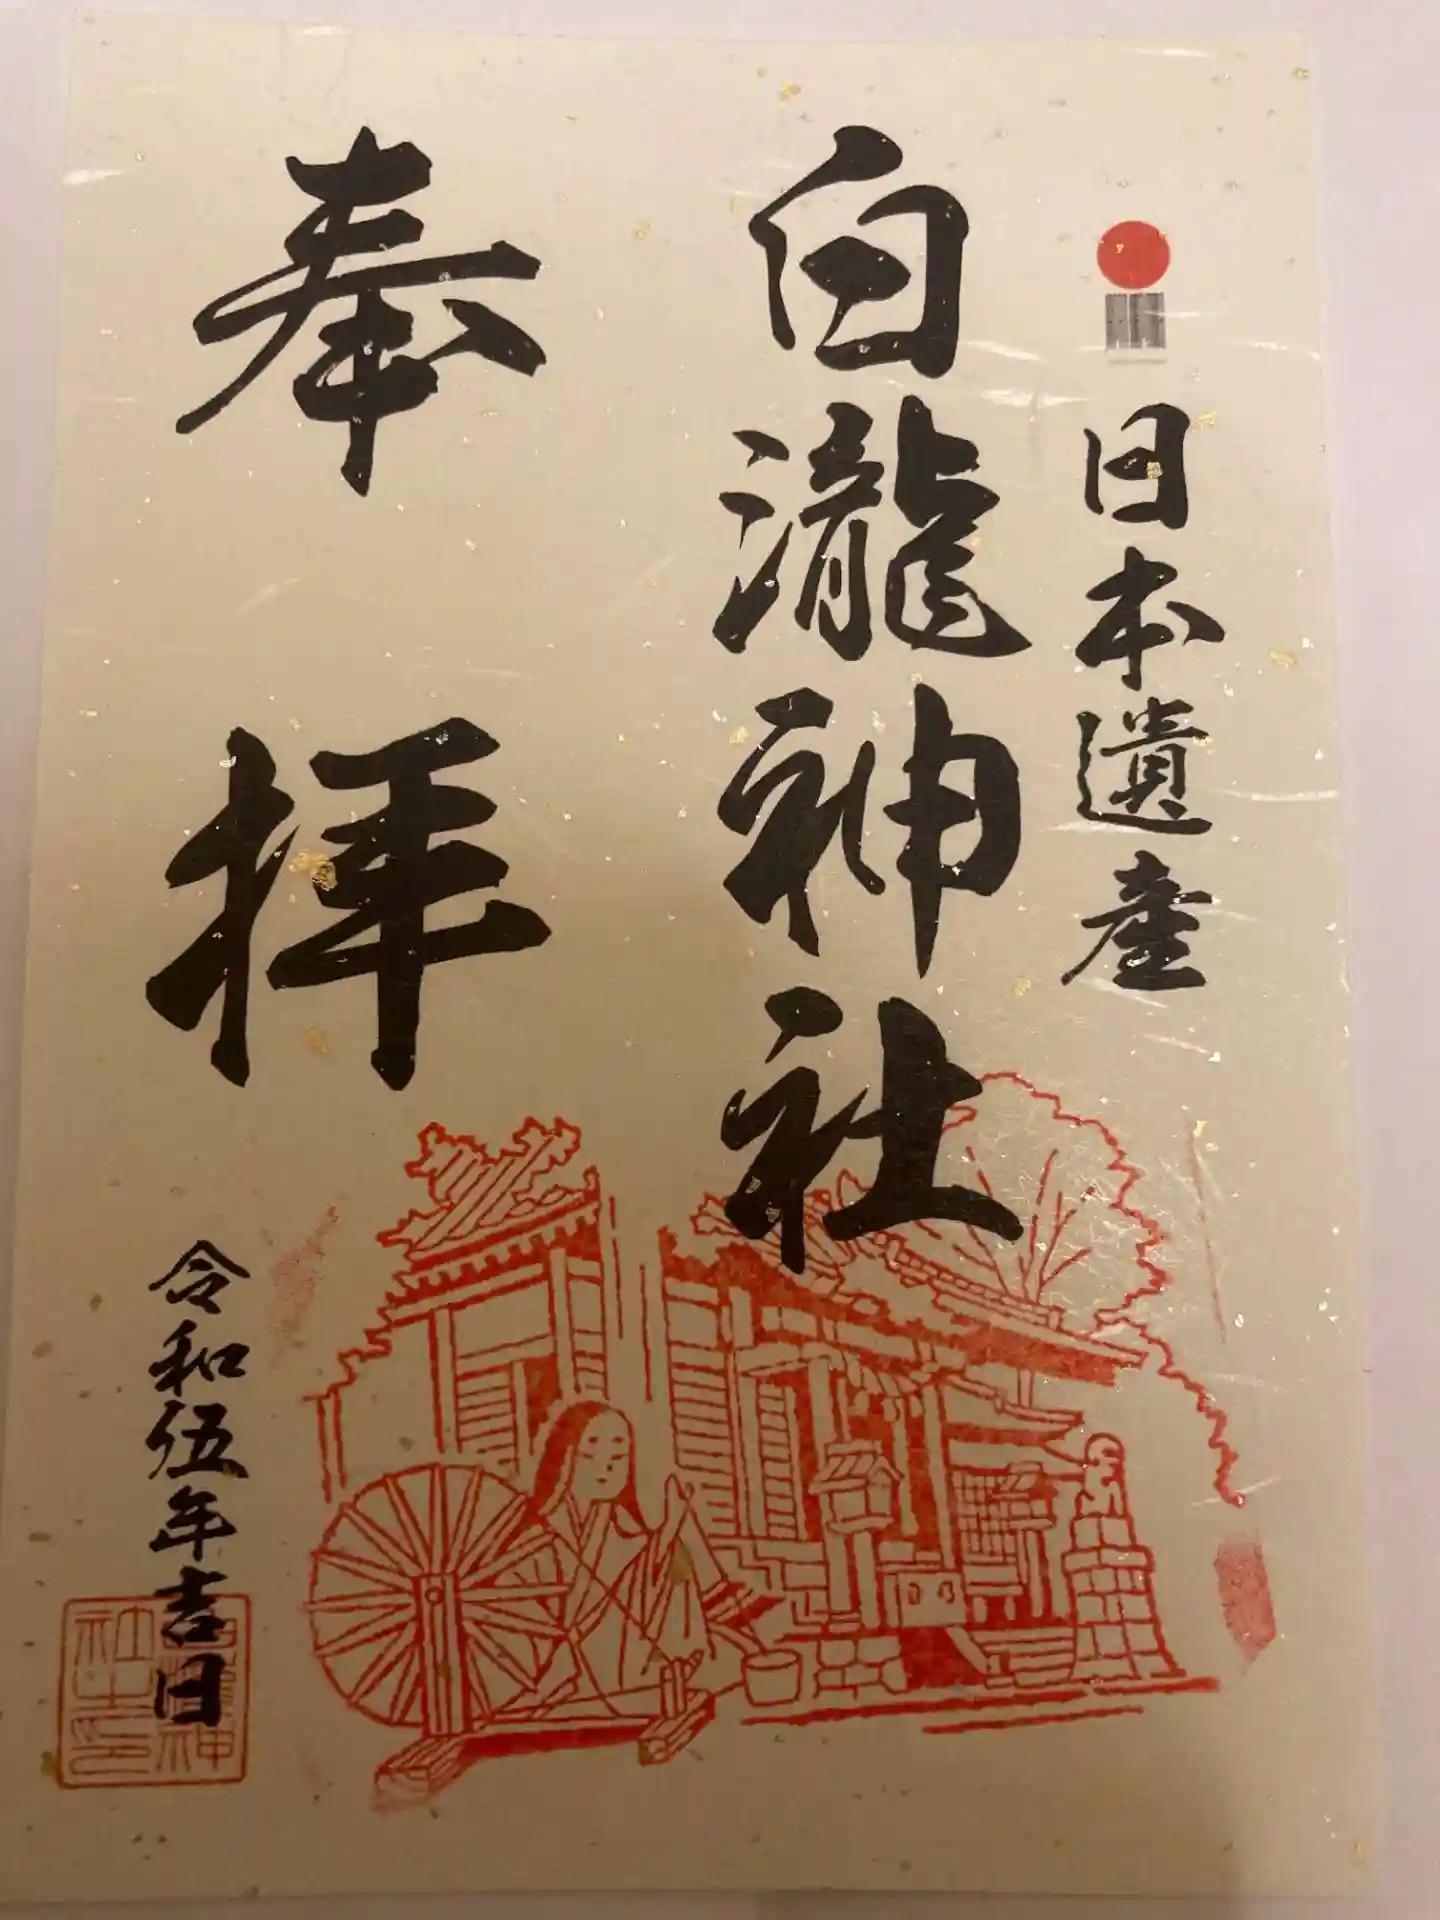 日本遺産
白瀧神社
奉拝
令和伍年吉日
白瀧神社之印